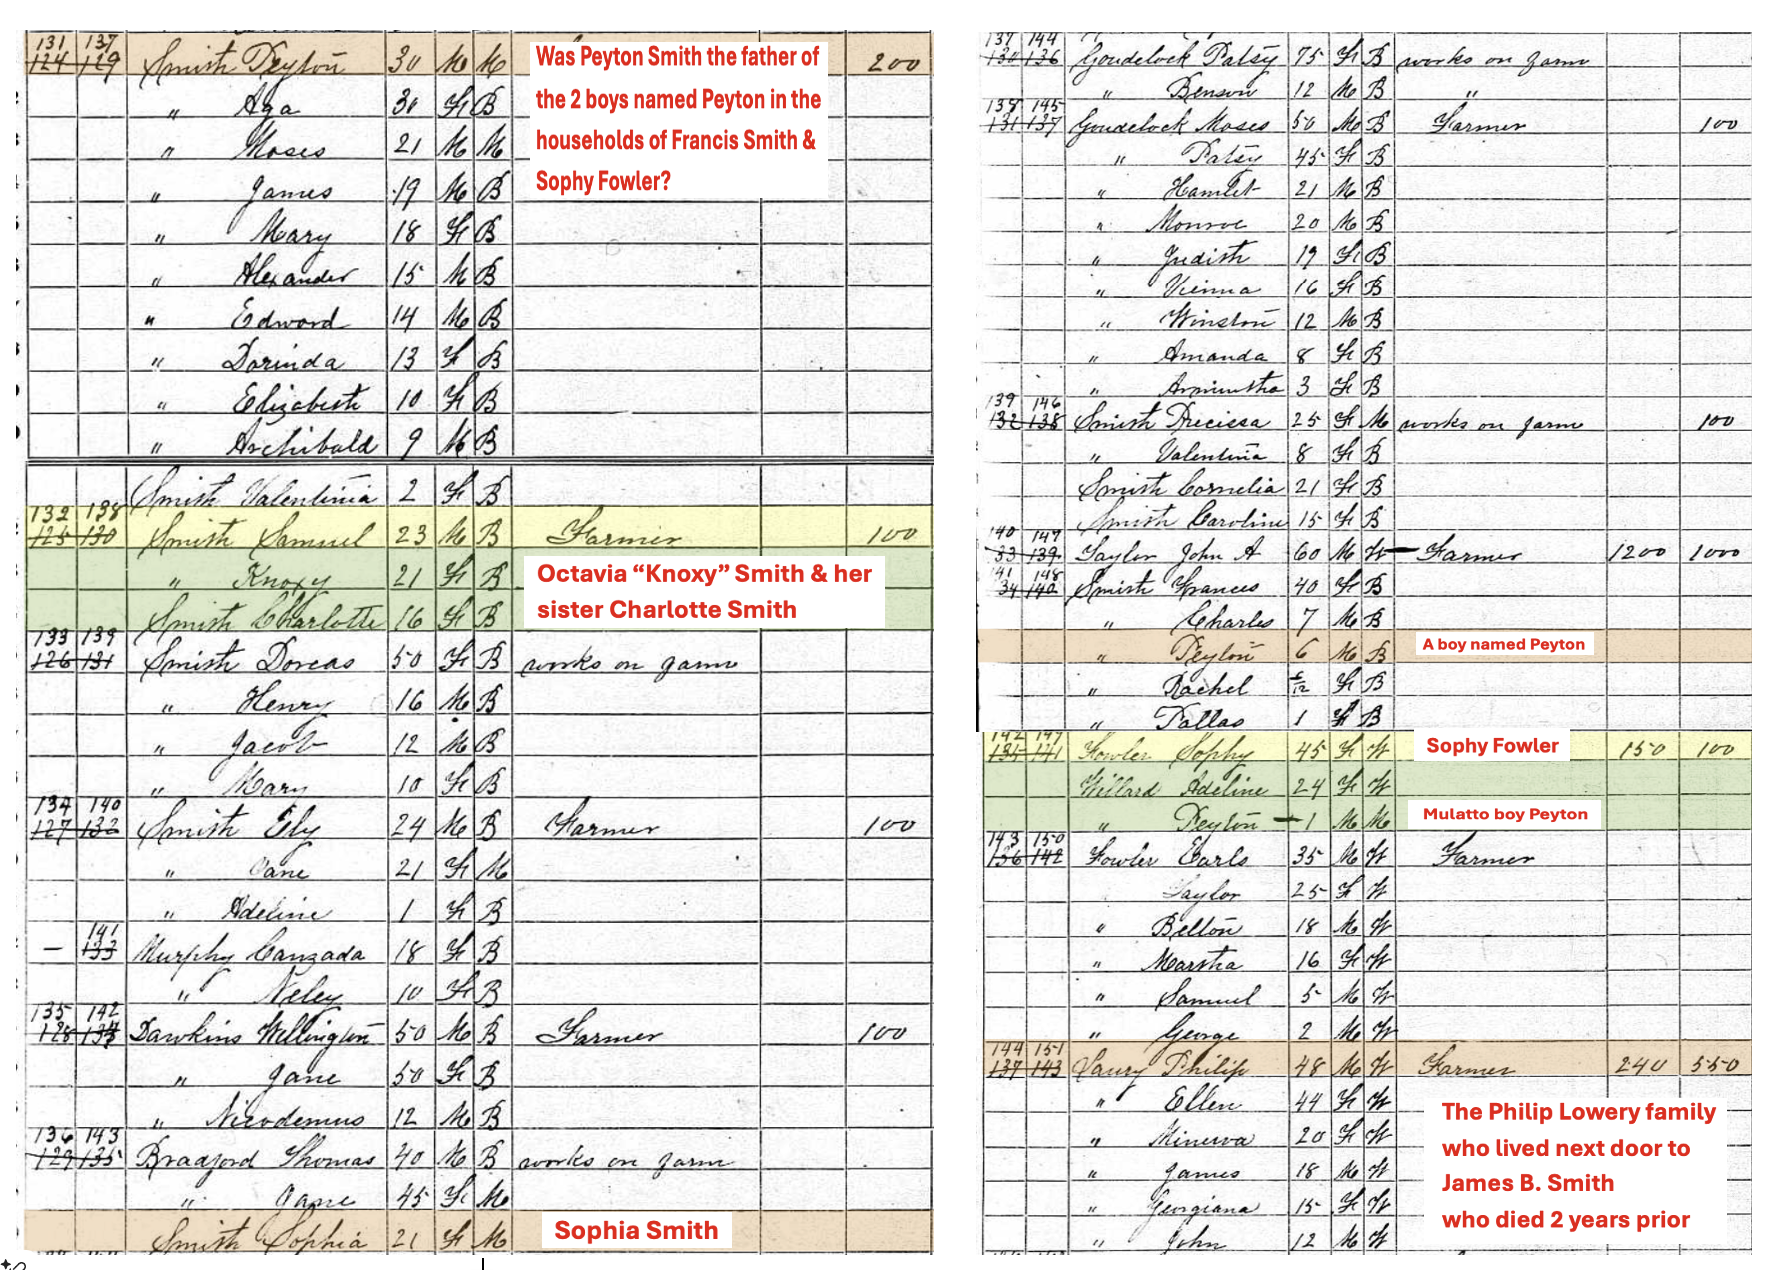 131 137
124 129 Smith Peyton 30 M M 200
" Aga 30 F B
" Moses 21 M M
" James 19 M B
" Mary 18 F B
" Alexander 15 M B
" Edward 14 M B
" Dorinda 13 F B
" Elizabeth 10 F B
" Archibald 9 M B
Was Peyton Smith the father of
the 2 boys named Peyton in the
households of Francis Smith &
Sophy Fowler?
Smith Valentinia 2 F B
132 138
125 130 Smith Samuel 23 M B Farmer 100
" Knoxy 21 F B
Smith Charlotte 16 F B
Octavia “Knoxy” Smith & her
sister Charlotte Smith
133 139
126 131 Smith Dorcas 50 F B works on farm
" Henry 16 M B
" Jacob 12 M B
" Mary 10 F B
134 140
127 132 Smith Ely 24 M B Farmer 100
" Jane 21 F M
" Adeline 1 F B
141
– 133 Murphy Canzada 18 F B
" Neley 10 F B
135 142
128 134 Dawkins Wellington 50 M B Farmer 100
" Jane 50 F B
" Nicodemus 12 M B
136 143
129 135 Bradford Thomas 40 M B works on farm
" Jane 45 F M
Smith Sophia 21 F M
Sophia Smith
137 144
130 136 Goudelock Patsy 75 F B works on farm
" Benson 12 M B "
138 145
131 137 Goudelock Moses 50 M B Farmer 100
" Patsy 45 F B
" Hamlet 21 M B
" Monroe 20 M B
" Judith 19 F B
" Vienna 16 F B
" Winston 12 M B
" Amanda 8 F B
" Armintha 3 F B
139 146
132 138 Smith Drecissa 25 F M works on farm 100
" Valentina 8 F B
Smith Cornelia 21 F B
Smith Caroline 15 F B
140 147
33 139 Taylor John A 60 M W – Farmer 1200 1000
141 148
34 140 Smith Frances 40 F B
" Charles 7 M B
" Peyton 6 M B
A boy named Peyton
" Rachel 6/12 F B
" Pallas 1 F B
142 149
135 141 Fowler Sophy 45 F W 150 100
Sophy Fowler
Willard Adeline 24 F W
" Peyton – 1 M M
Mulatto boy Peyton
143 150
136 142 Fowler Earls 35 M W Farmer
Saylor 25 F W
" Belton 18 M W
" Martha 16 F W
" Samuel 5 M W
" George 2 M W
144 151
137 143 Laury Philip 48 M W Farmer 240 550
" Ellen 44 F W
" Minerva 20 F W
" James 18 M W
" Georgiana 15 F W
" John 12 M W
The Philip Lowery family
who lived next door to
James B. Smith
who died 2 years prior